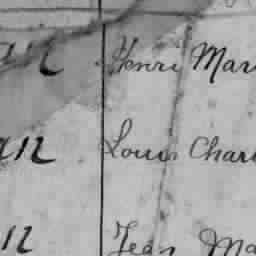 an Henri Mar
an Louis Char
an Jean Ma